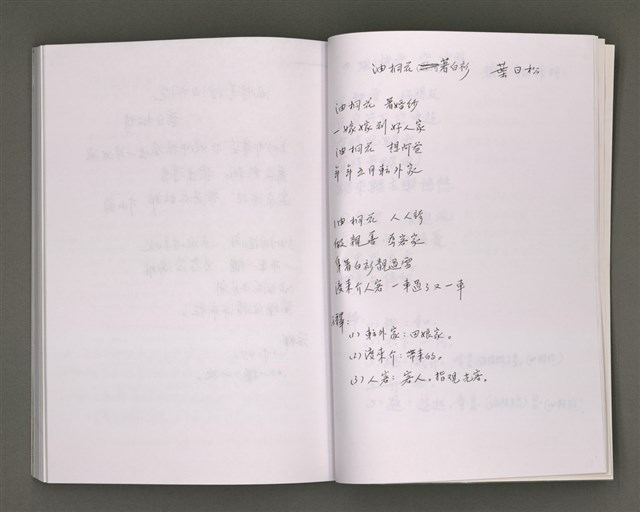 油桐花著白衫 葉日松
油桐花 著婚紗
一嫁嫁到好人家
油桐花 想阿爸
年年五月轉外家
油桐花 人人誇
做親善 為客家
身著白衫靚過雪
渡來介人客 一車過了又一車
註釋：
(1) 轉外家：回娘家。
(2) 渡來介：帶來的。
(3) 人客：客人。指觀光客。